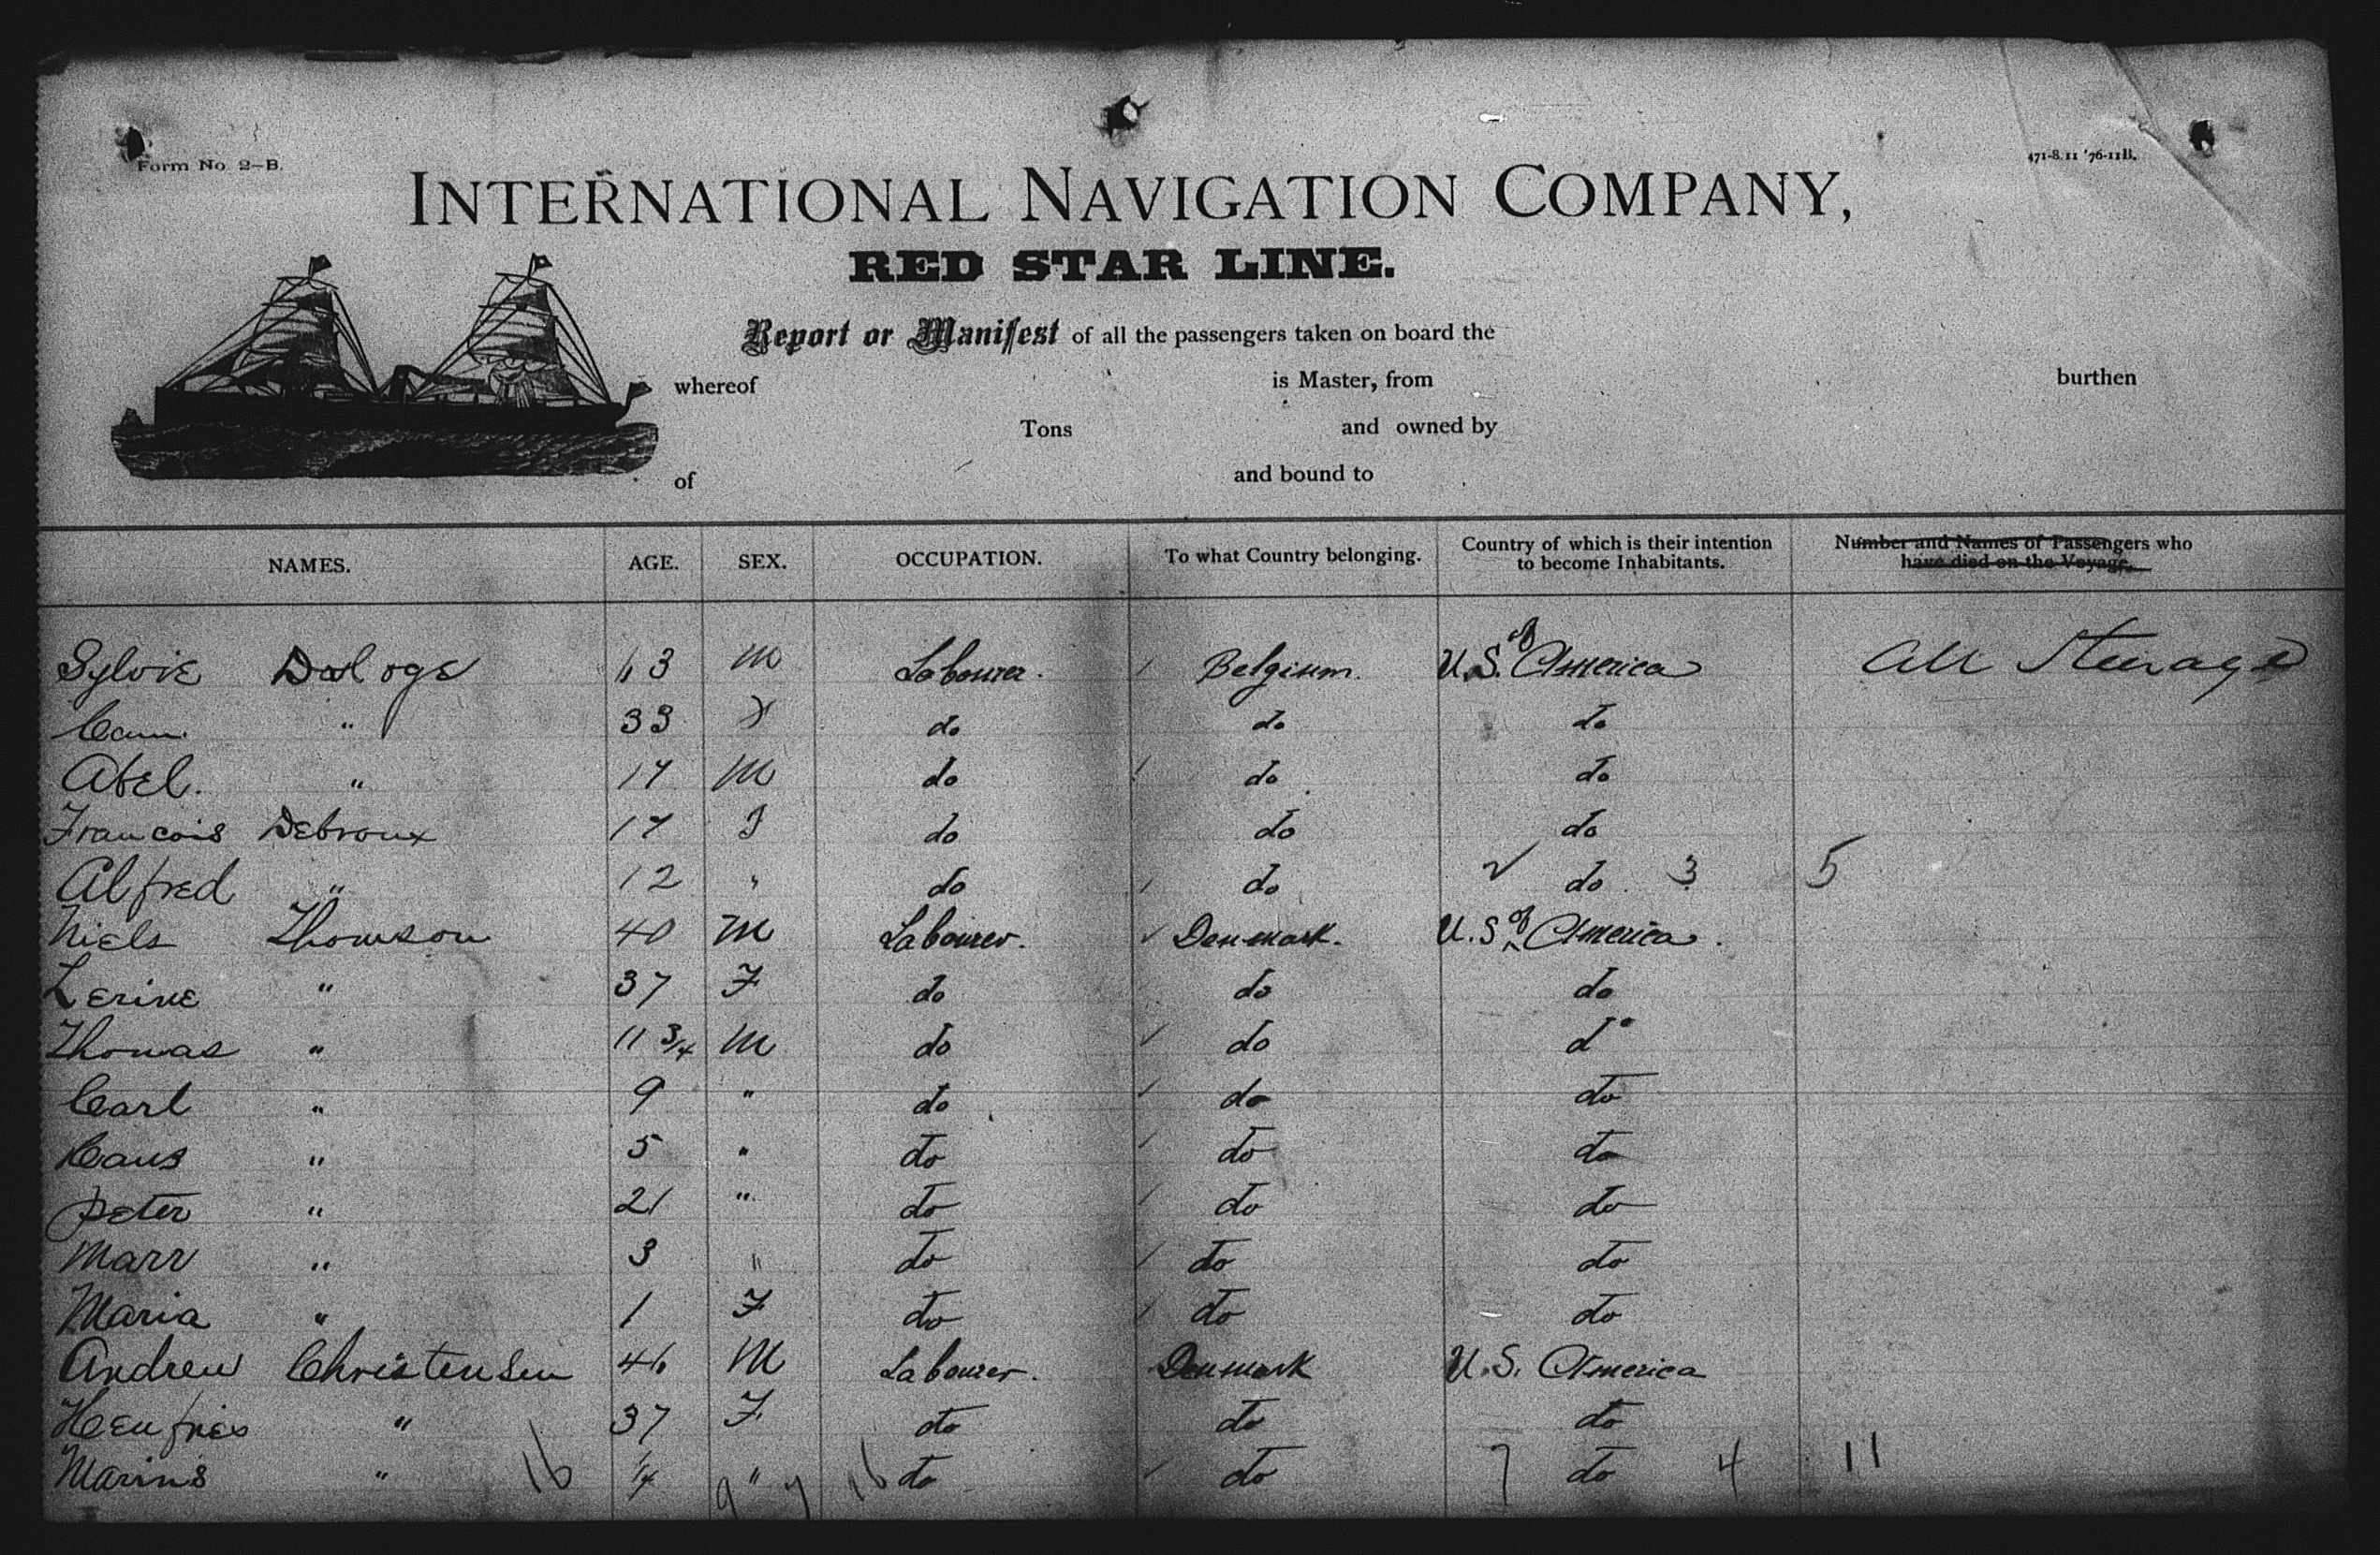 Form No. 2-B.
471-8.11 '76-11B.
INTERNATIONAL NAVIGATION COMPANY,
RED STAR LINE.
Report or Manifest of all the passengers taken on board the
whereof is Master, from burthen
Tons and owned by
of and bound to
NAMES. AGE. SEX. OCCUPATION. To what Country belonging. Country of which is their intention to become Inhabitants. Number and Names of Passengers who have died on the Voyage.
Sylvie 63 M Labourer. Belgium. U.S. of America All Steerage
" 33 do do do
Abel. " 17 M do do do
Francois Debroux 17 F do do do
Alfred " 12 " do do do 3 5
Niels Thomson 40 M Labourer. Denmark. U.S. of America.
Lerine " 37 F do do do
Thomas " 11 3/4 M do do do
Carl " 9 " do do do
Claus " 5 " do do do
Peter " 21 " do do do
Marr " 3 " do do do
Maria " 1 F do do do
Andrew Christensen 46 M Labourer. Denmark U.S. America
" 37 F do do do
Marins " 16 1/4 " 9 7 16 do do 7 do 4 11